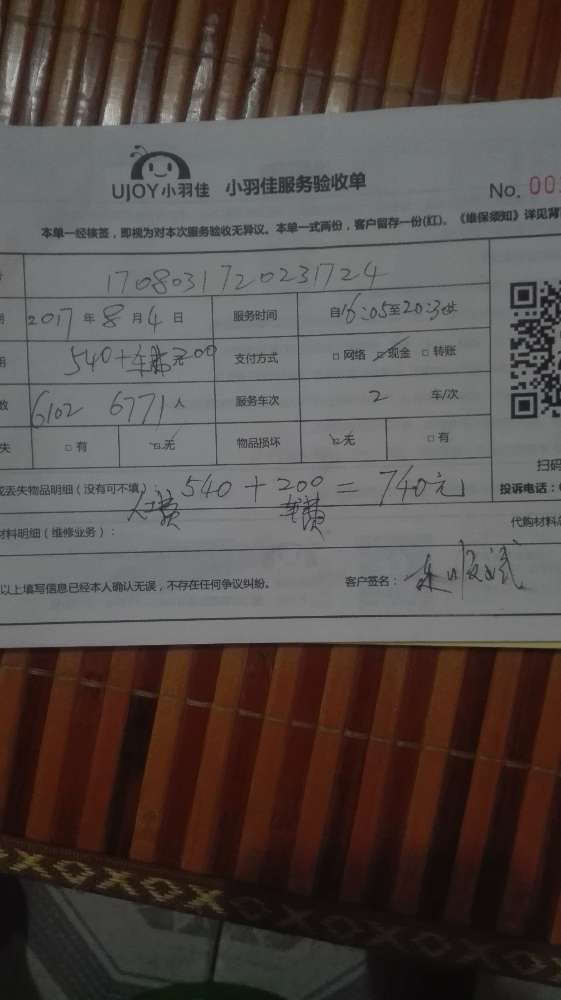 UJOY小羽佳 小羽佳服务验收单
No. 00
本单一经核签，即视为对本次服务验收无异议。本单一式两份，客户留存一份(红)。《维保须知》详见背
1708031720231724
期 2017 年 8 月 4 日 服务时间 自16:05至20:3
用 540+车费200 支付方式 □ 网络 ☑ 现金 □ 转账
数 6102 6771 人 服务车次 2 车/次
失 □ 有 ☑ 无 物品损坏 ☑ 无 □ 有
或丢失物品明细（没有可不填）： 540 + 200 = 740元
人工费 车费
扫码
投诉电话：
材料明细（维修业务）： 代购材料
以上填写信息已经本人确认无误，不存在任何争议纠纷。 客户签名：